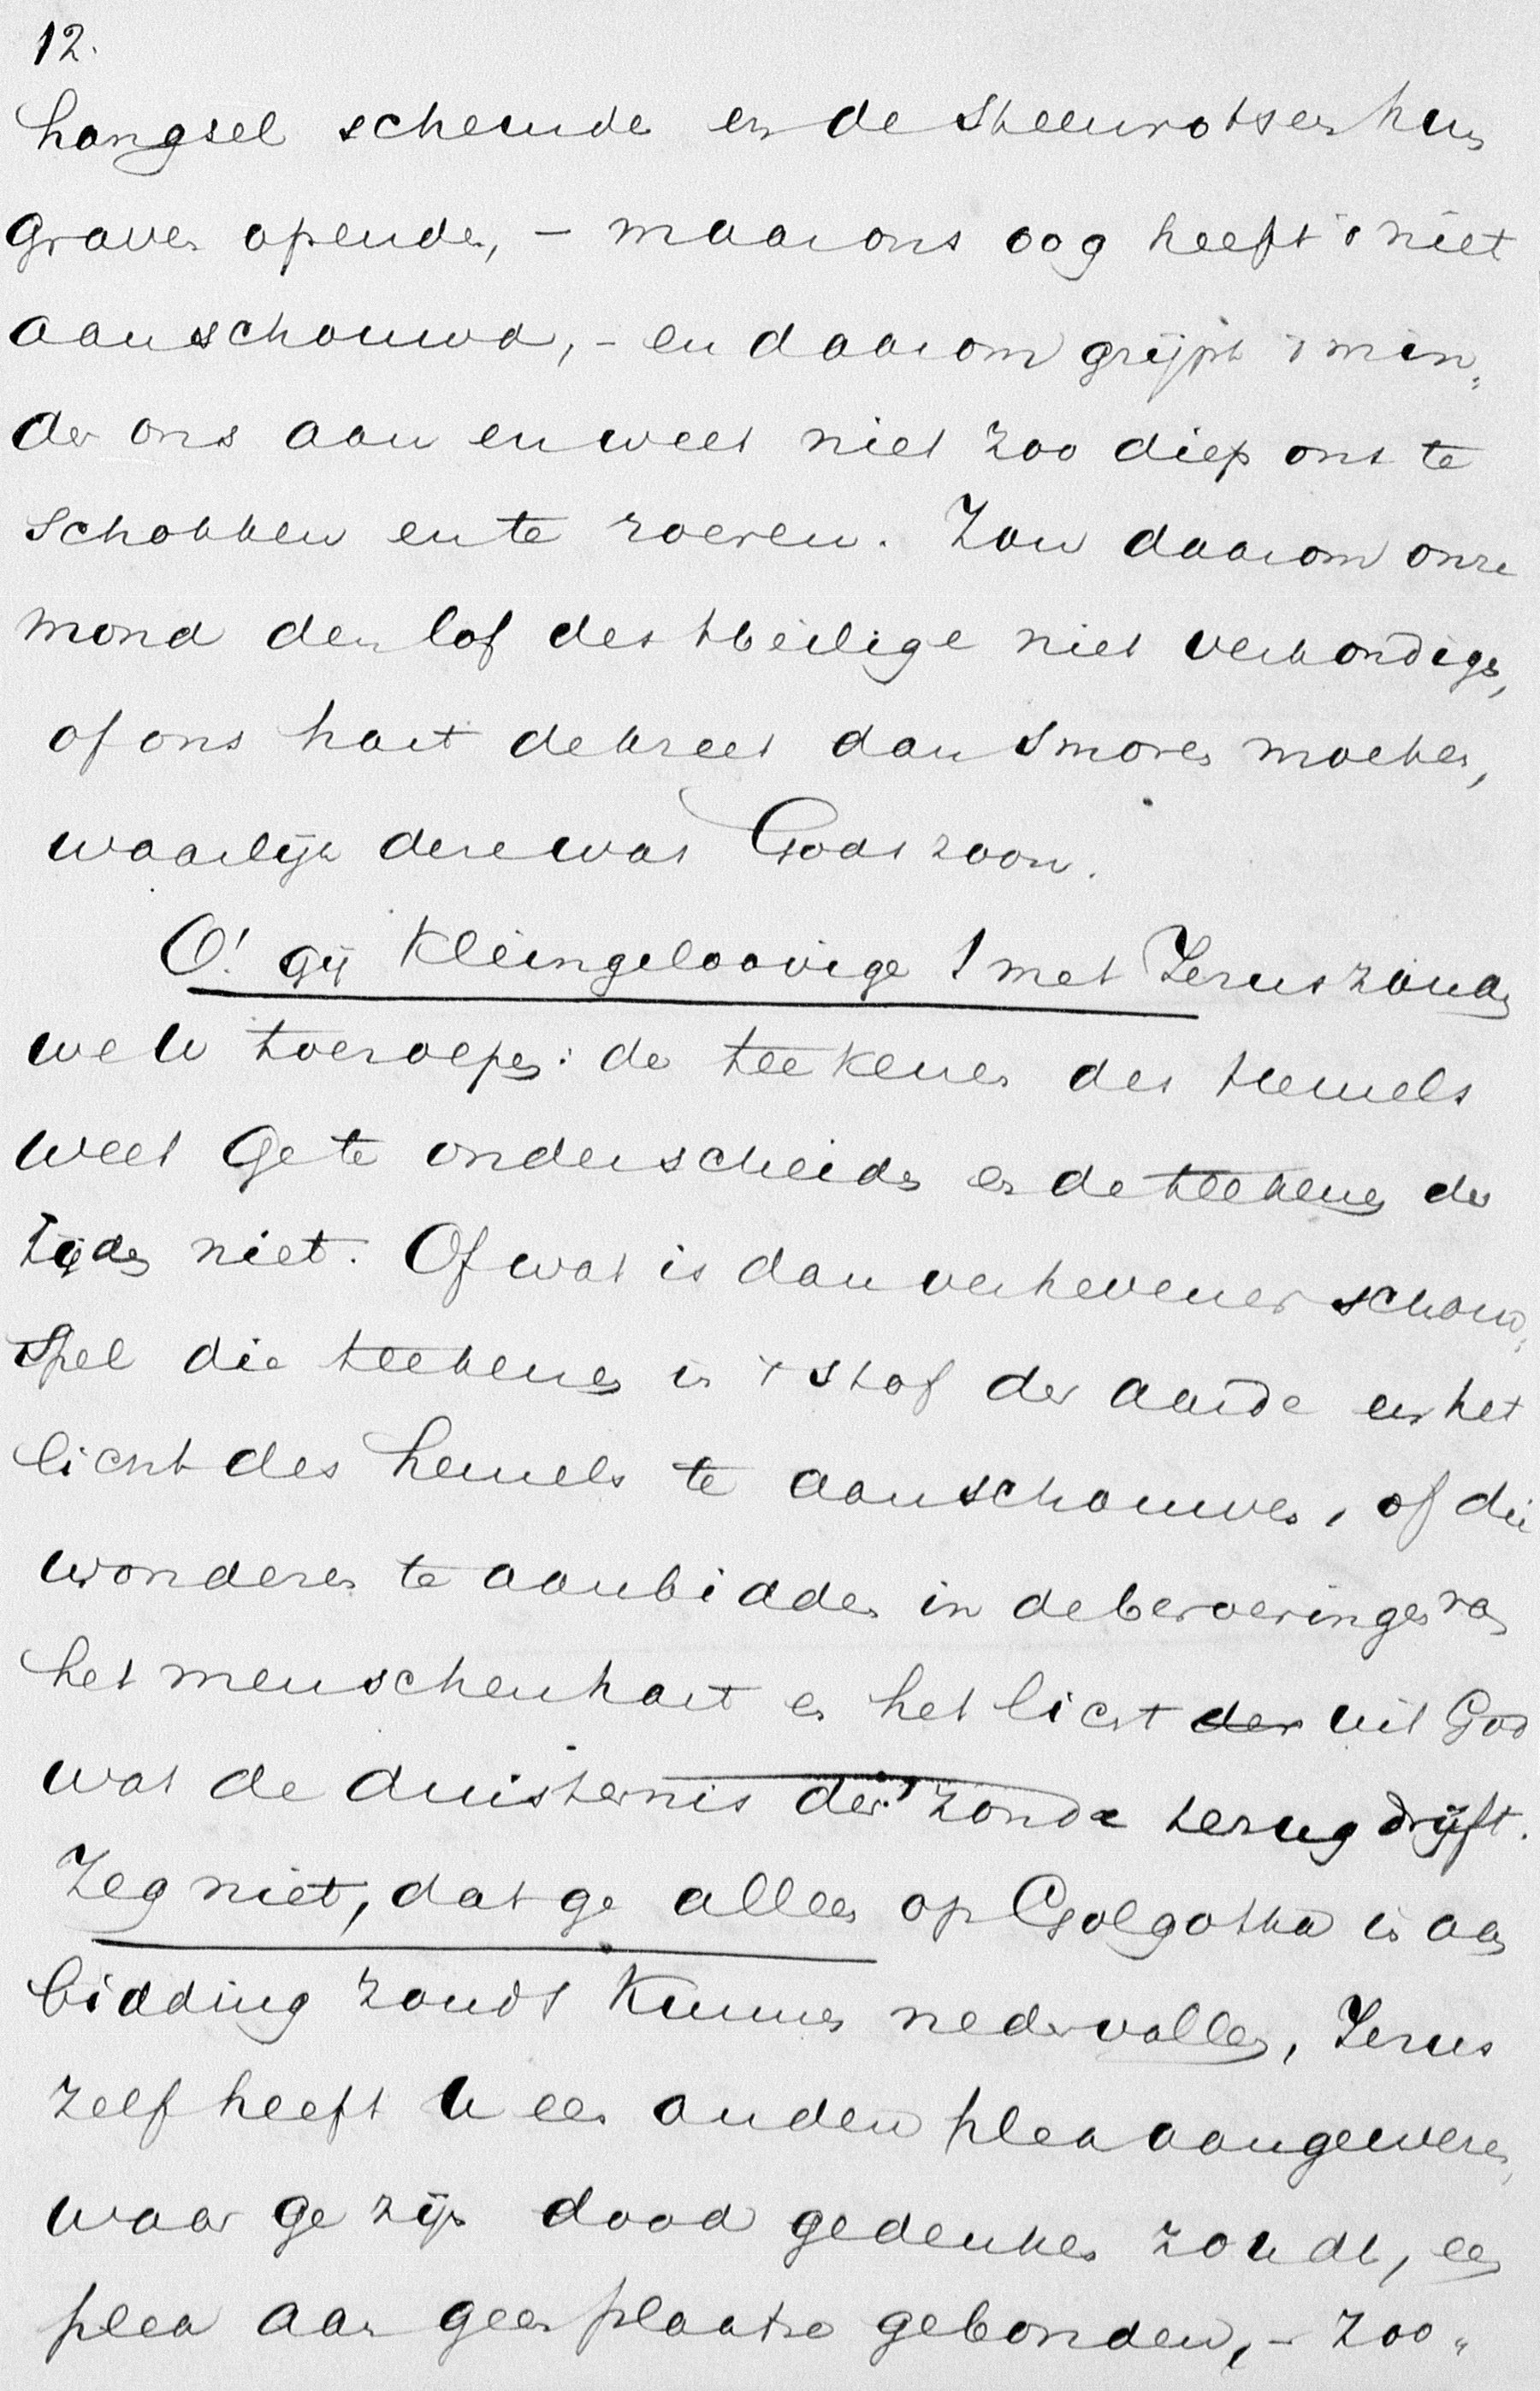 12.
hangsel scheurde en de steenrotsen hun
graven openden, – maar ons oog heeft 't niet
aanschouwd, – en daarom grijpt 't min„
der ons aan en weet niet zoo diep ons te
schokken en te roeren. Zou daarom onze
mond den lof des Heilige niet verkondigen,
of ons hart de kreet dan smoren moeten,
waarlijk deze was Gods zoon.
O! gij kleingeloovige! met Jezus zouden
we U toeroepen: de teekenen des hemels
weet Ge te onderscheiden en de teekenen der
tijden niet. Of wat is dan verhevener schouw„
spel die teekenen in 't stof der aarde en het
licht des hemels te aanschouwen, of die
wonderen te aanbidden in de beroeringen van
het menschenhart en het licht der uit God
wat de duisternis der zonde terugdrijft.
Zeg niet, dat ge alleen op Golgotha in aan
bidding zoudt kunnen nedervallen, Jezus
zelf heeft U een andere plek aangewezen,
waar ge zijn dood gedenken zoudt, een
plek aan geen plaatse gebonden, – zoo„